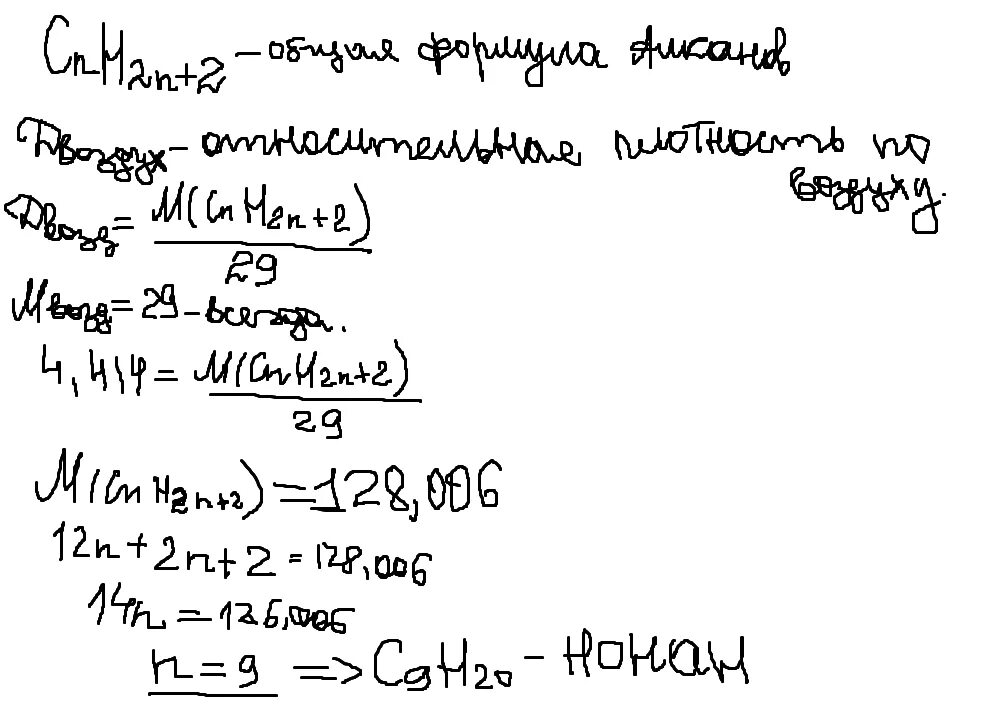 CnH2n+2 - общая формула алканов
Dвоздух - относительная плотность по воздуху.
Dвозд = M(CnH2n+2) / 29
Mвозд = 29 - всегда.
4,414 = M(CnH2n+2) / 29
M(CnH2n+2) = 128,006
12n + 2n + 2 = 128,006
14n = 126,006
n = 9 => C9H20 - НОНАН